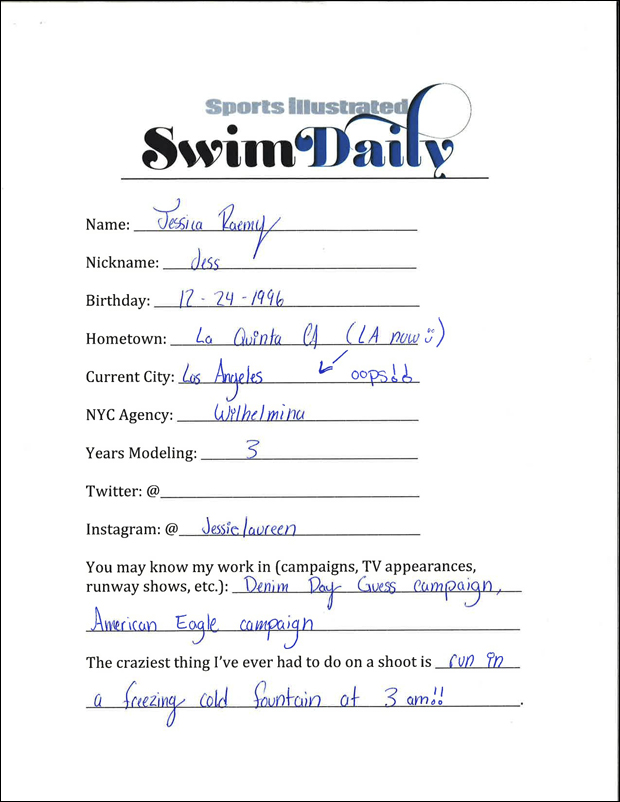 Sports Illustrated
Swim Daily
Name: Jessica Raemy
Nickname: Jess
Birthday: 12 - 24 - 1996
Hometown: La Quinta CA (LA now :))
Current City: Los Angeles oops!!
NYC Agency: Wilhelmina
Years Modeling: 3
Twitter: @
Instagram: @ Jessielaureen
You may know my work in (campaigns, TV appearances,
runway shows, etc.): Denim Day Guess campaign,
American Eagle campaign
The craziest thing I've ever had to do on a shoot is run in
a freezing cold fountain at 3 am!!.